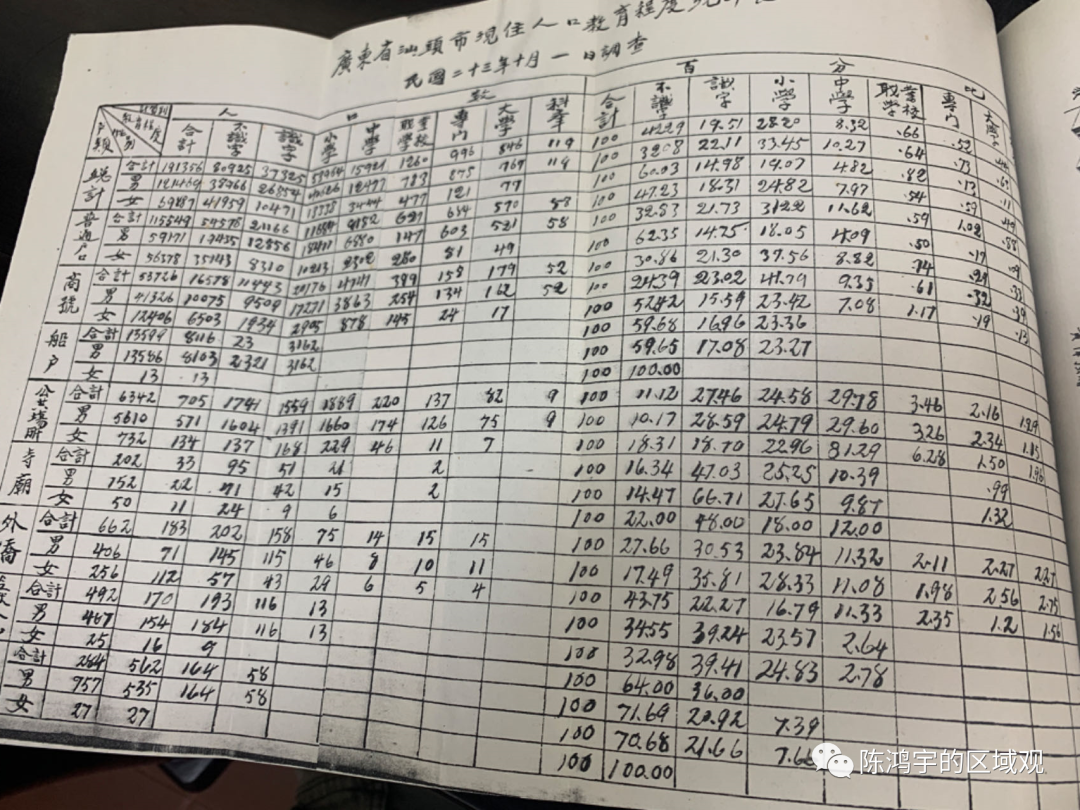 廣東省汕頭市現住人口教育程度
民國二十三年十月一日調查
人口數 百分比
戶類 性別 教育程度 合計 不識字 識字 小學 中學 職業學校 專門 大學 科舉 合計 不識字 識字 小學 中學 職業學校 專門 大學
總計 合計 191356 80925 37325 15921 1260 996 846 119 100 42.29 19.51 28.20 8.32 .66 .52
男 38966 26854 12477 783 875 769 119 100 32.08 22.11 33.45 10.27 .64 .73
女 69887 41959 10471 3444 477 121 77 100 60.03 14.98 19.07 4.82
普通戶 合計 115549 54576 21166 684 570 58 100 47.23 18.31 24.82 7.97 .54 .59
男 59171 19435 12856 6880 603 521 58 100 32.83 21.73 31.22 11.62 .59 1.02
女 56378 35143 8310 10213 2302 280 81 49 100 62.35 14.75 18.05 4.09 .50
商號 合計 53726 16578 11443 20176 4741 399 158 179 52 100 30.86 21.30 37.56 8.82 .74
男 41326 10075 9509 17271 3863 254 134 162 52 100 24.39 23.02 41.79 9.33 .61 .32
女 12406 6503 1934 2905 878 145 24 17 100 52.42 15.59 23.42 7.08 1.17 .19 .13
船戶 合計 13599 8116 23 3162 100 59.68 16.96 23.36
男 13586 8103 2321 3162 100 59.65 17.08 23.27
女 13 13 100 100.00
公共場所 合計 6342 705 1741 1559 1889 220 137 82 9 100 11.12 27.46 24.58 29.78 3.46 2.16 1.29
男 5610 571 1604 1391 1660 174 126 75 9 100 10.17 28.59 24.79 29.60 3.26 2.34
女 732 134 137 168 229 46 11 7 100 18.31 18.70 22.96 31.29 6.28 1.50
寺廟 合計 202 33 95 51 21 2 100 16.34 47.03 25.25 10.39 .99
男 152 22 71 42 15 2 100 14.47 66.71 27.65 9.87 1.32
女 50 11 24 9 6 100 22.00 48.00 18.00 12.00
外僑 合計 662 183 202 158 75 14 15 15 100 27.66 30.53 23.84 11.32 2.11 2.27 2.27
男 406 71 145 115 46 8 10 11 100 17.49 35.81 28.33 11.08 1.98 2.56 2.75
女 256 112 57 43 29 6 5 4 100 43.75 22.27 16.79 11.33 2.35 1.2 1.56
合計 492 170 193 116 13 100 34.55 39.24 23.57 2.64
男 467 154 184 116 13 100 32.98 39.41 24.83 2.78
女 25 16 9 100 64.00 36.00
合計 562 164 58 100 71.69 20.92 7.39
男 757 535 164 58 100 70.68 21.66 7.66
女 27 27 100 100.00
陈鸿宇的区域观